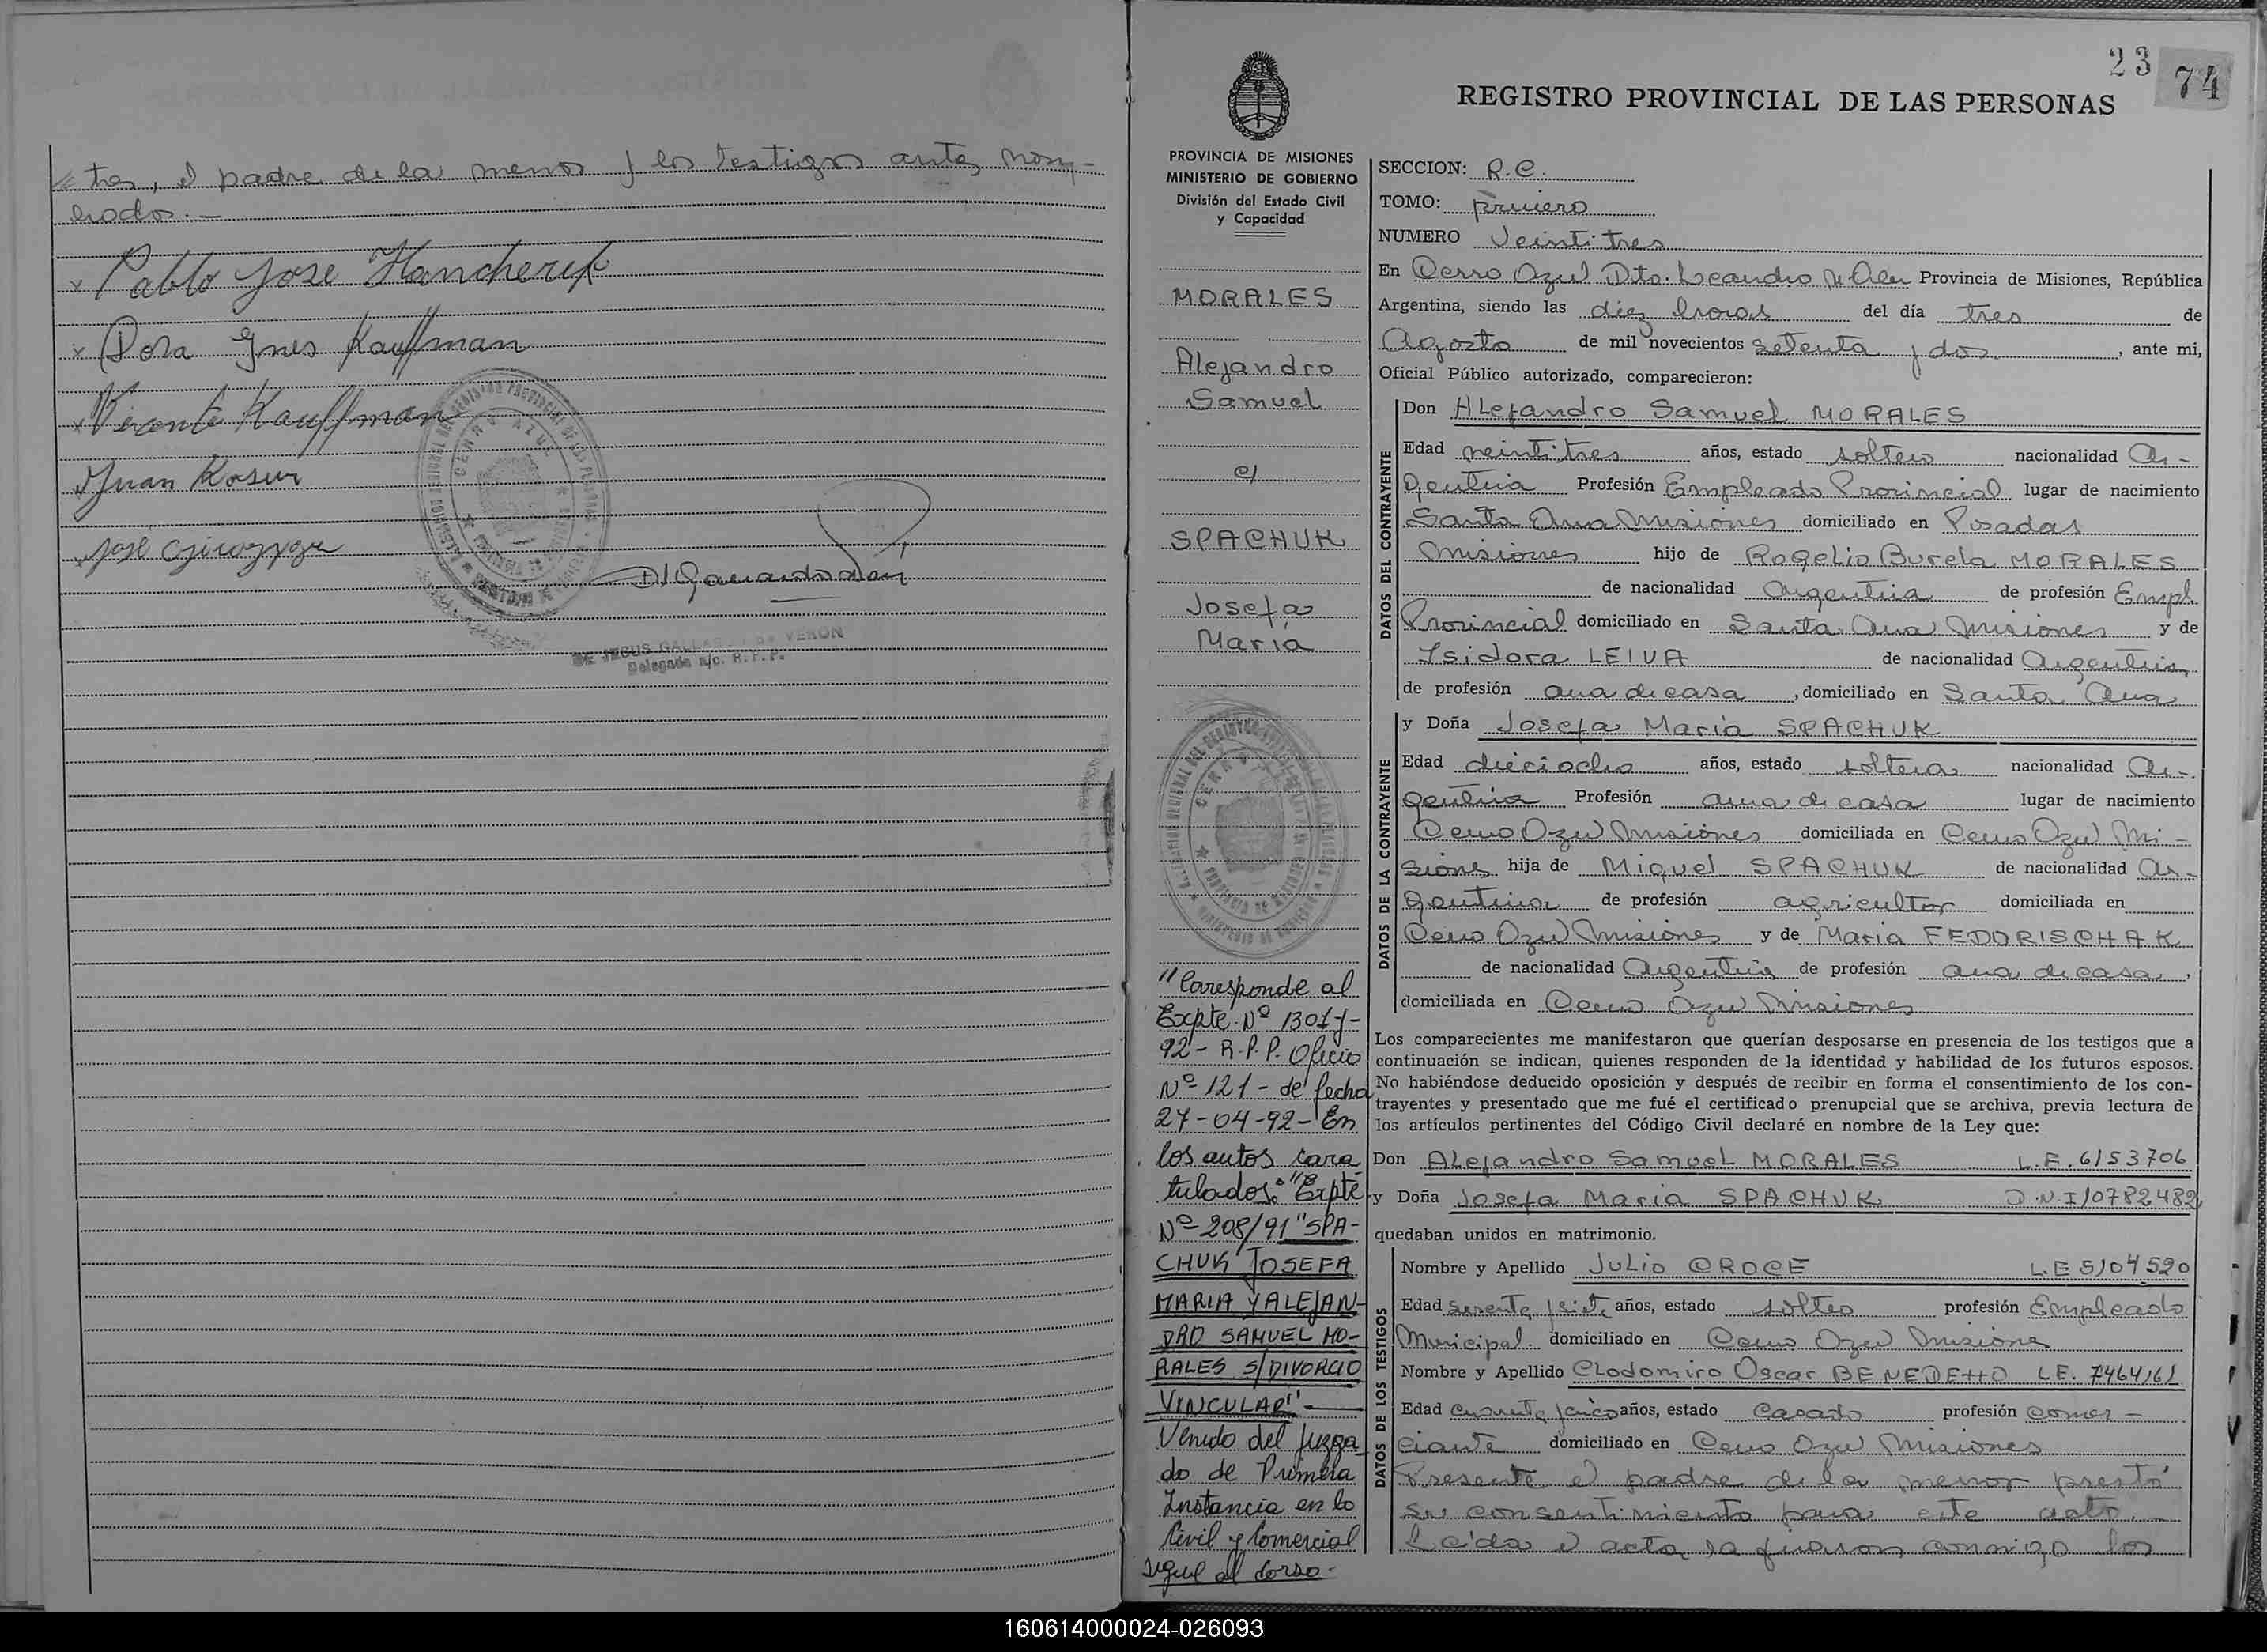 tres, el padre de la menor y los testigos antes nom-
brados.-
x Pablo Jose Hancheruk
x Dora Ynes Kauffman
x Vicente Kauffman
Juan Kosur
José
CERRO AZUL
DE JESUS GALLAR VERON
Delegada a/c. R.P.P.
23
74
REGISTRO PROVINCIAL DE LAS PERSONAS
PROVINCIA DE MISIONES
MINISTERIO DE GOBIERNO
División del Estado Civil
y Capacidad
MORALES
Alejandro
Samuel
c/
SPACHUK
Josefa
María
"Corresponde al
Expte. Nº 1301-J-
92- R.P.P. Oficio
Nº 121- de fecha
27-04-92- En
los autos cara
tulados: "Expte
Nº 208/91 "SPA-
CHUK JOSEFA
MARIA Y ALEJAN-
DRO SAMUEL MO-
RALES S/DIVORCIO
VINCULAR"-
Venido del Juzga
do de Primera
Instancia en lo
Civil y Comercial
sigue al dorso-
SECCION: R.C.
TOMO: Primero
NUMERO Veintitres
En Cerro Azul Dto. Leandro N. Alem Provincia de Misiones, República
Argentina, siendo las diez horas del día tres de
Agosto de mil novecientos setenta y dos, ante mi,
Oficial Público autorizado, comparecieron:
DATOS DEL CONTRAYENTE
Don ALejandro Samuel MORALES
Edad veintitres años, estado soltero nacionalidad Ar-
gentina Profesión Empleado Provincial lugar de nacimiento
Santa Ana Misiones domiciliado en Posadas
Misiones hijo de Rogelio Burela MORALES
de nacionalidad Argentina de profesión Empl
Provincial domiciliado en Santa Ana Misiones y de
Isidora LEIVA de nacionalidad Argentina
de profesión ama de casa, domiciliado en Santa Ana
DATOS DE LA CONTRAYENTE
y Doña Josefa María SPACHUK
Edad dieciocho años, estado soltera nacionalidad Ar-
gentina Profesión ama de casa lugar de nacimiento
Cerro Azul Misiones domiciliada en Cerro Azul Mi-
siones hija de Miguel SPACHUK de nacionalidad Ar-
gentina de profesión agricultor domiciliada en
Cerro Azul Misiones y de Maria FEDORISCHAK
de nacionalidad Argentina de profesión ama de casa,
domiciliada en Cerro Azul Misiones
Los comparecientes me manifestaron que querían desposarse en presencia de los testigos que a
continuación se indican, quienes responden de la identidad y habilidad de los futuros esposos.
No habiéndose deducido oposición y después de recibir en forma el consentimiento de los con-
trayentes y presentado que me fué el certificado prenupcial que se archiva, previa lectura de
los artículos pertinentes del Código Civil declaré en nombre de la Ley que:
Don ALejandro Samuel MORALES L.E. 6153706
y Doña Josefa María SPACHUK D.N.I 10782482
quedaban unidos en matrimonio.
DATOS DE LOS TESTIGOS
Nombre y Apellido JuLio CROCE L.E 5104520
Edad sesenta y siete años, estado soltero profesión Empleado
Municipal domiciliado en Cerro Azul Misiones
Nombre y Apellido CLodomiro Oscar BENEDETTO LE. 7464161
Edad cuarenta y cinco años, estado casado profesión comer-
ciante domiciliado en Cerro Azul Misiones
Presente el padre de la menor prestó
su consentimiento para este acto.-
Leída el acta la firman conmigo los
160614000024-026093